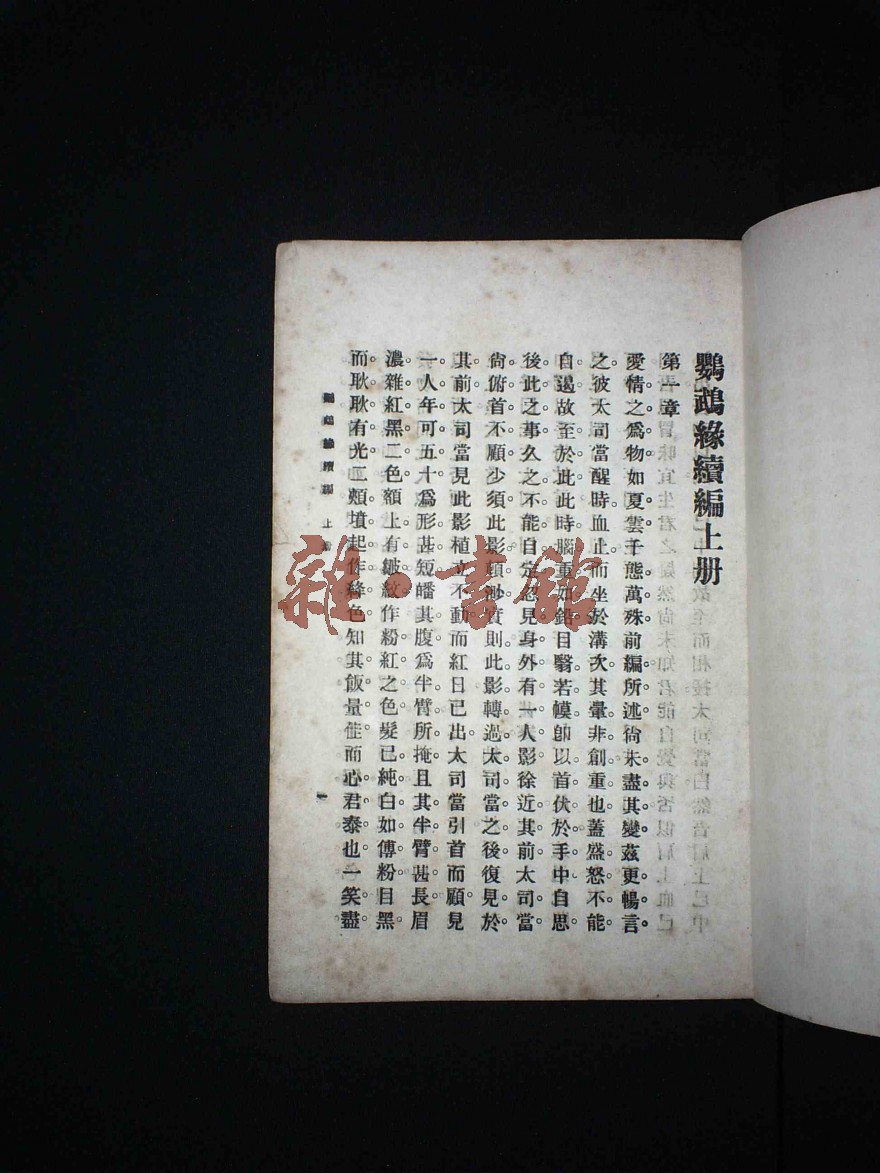 鸚鵡緣續編上册
第一章
愛情之爲物如夏雲千態萬殊前編所述尙未盡其變茲更暢言
之彼太司當醒時血止而坐於溝次其暈非創重也蓋盛怒不能
自遏故至於此此時腦重如鉛目翳若幙卽以首伏於手中自思
後此之事久之不能自定忽見身外有一人影徐近其前太司當
尙俯首不顧少須此影頓渺實則此影轉過太司當之後復見於
其前太司當見此影植立不動而紅日已出太司當引首而顧見
一人年可五十爲形甚短皤其腹爲半臂所掩且其半臂甚長眉
濃雜紅黑二色額上有皺紋作粉紅之色髮已純白如傅粉目黑
而耿耿有光二頰墳起作絳色知其飯量佳而心君泰也一笑盡
鸚鵡緣續編 上册
一
雜·書館